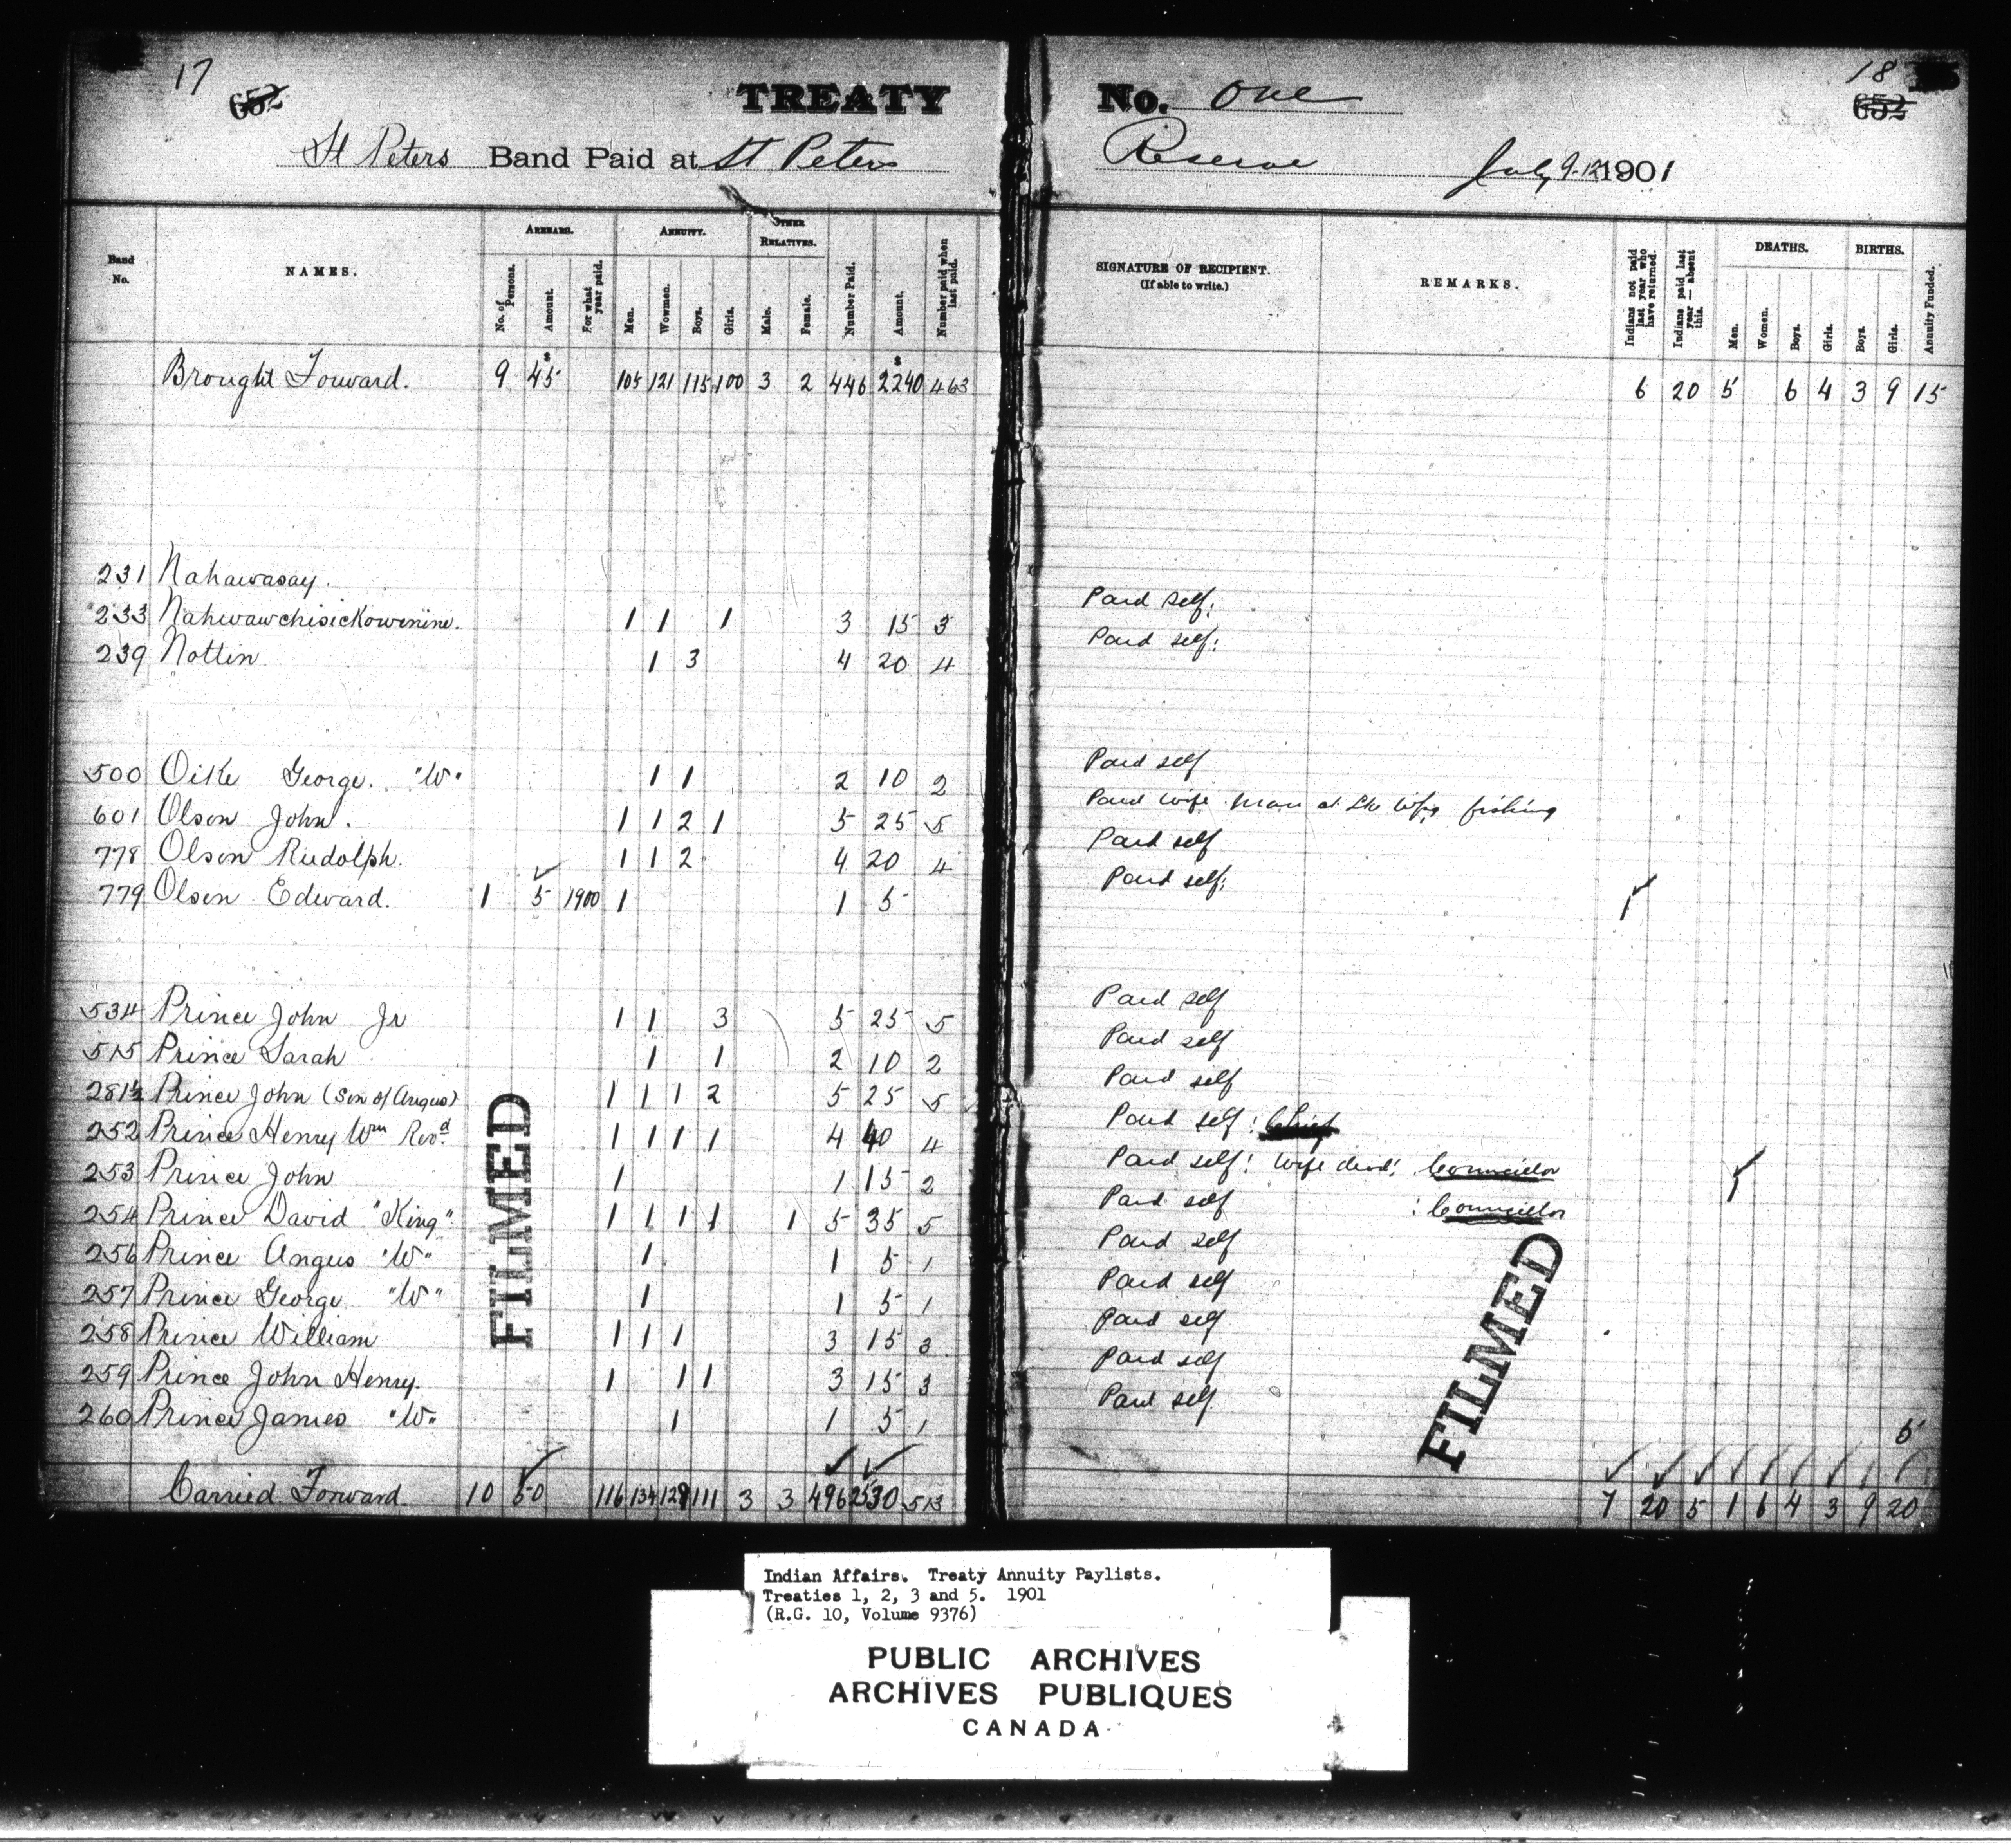 17
652
TREATY No. One
18
652
St Peters Band Paid at St Peters Reserve July 9-12 1901
Band No.
NAMES.
ARREARS.
No. of Persons.
Amount.
For what year paid.
ANNUITY.
Men.
Wowmen.
Boys.
Girls.
OTHER RELATIVES.
Male.
Female.
Number Paid.
Amount.
Number paid when last paid.
SIGNATURE OF RECIPIENT.
(If able to write.)
REMARKS.
Indians not paid last year who have returned.
Indians paid last year — absent this.
DEATHS.
Men.
Women.
Boys.
Girls.
BIRTHS.
Boys.
Girls.
Annuity Funded.
Brought Forward. 9 $45 105 121 115 100 3 2 446 $2240 463 6 20 5 6 4 3 9 15
231 Nahawasay.
233 Nahwawchisickowinine. 1 1 1 3 15 3 Paid self.
239 Nottin 1 3 4 20 4 Paid self.
500 Oike George. "W" 1 1 2 10 2 Paid self
601 Olson John. 1 1 2 1 5 25 5 Paid wife man at Lk Wpg fishing
778 Olson Rudolph. 1 1 2 4 20 4 Paid self
779 Olsen Edward. 1 5 1900 1 1 5 Paid self. 1
534 Prince John Jr 1 1 3 5 25 5 Paid self
515 Prince Sarah 1 1 2 10 2 Paid self
281½ Prince John (Son of Angus) 1 1 1 2 5 25 5 Paid self
252 Prince Henry Wm Revd. 1 1 1 1 4 40 4 Paid self: Chief
253 Prince John 1 1 15 2 Paid self: Wife dead: Councillor 1
254 Prince David "King" 1 1 1 1 1 5 35 5 Paid self : Councillor
256 Prince Angus "W" 1 1 5 1 Paid self
257 Prince George "W" 1 1 5 1 Paid self
258 Prince William 1 1 1 3 15 3 Paid self
259 Prince John Henry. 1 1 1 3 15 3 Paid self
260 Prince James "W" 1 1 5 1 Paid self 5
Carried Forward 10 50 116 134 129 111 3 3 496 2530 513 7 20 5 1 6 4 3 9 20
FILMED
FILMED
Indian Affairs. Treaty Annuity Paylists.
Treaties 1, 2, 3 and 5. 1901
(R.G. 10, Volume 9376)
PUBLIC ARCHIVES
ARCHIVES PUBLIQUES
CANADA